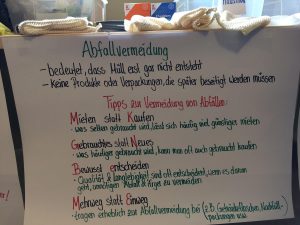 Abfallvermeidung
- bedeutet, dass Müll erst gar nicht entsteht
- Keine Produkte oder Verpackungen, die später beseitigt werden müssen
Tipps zur Vermeidung von Abfällen:
Mieten statt Kaufen
- was selten gebraucht wird, lässt sich häufig günstiger mieten
Gebrauchtes statt Neues
- was häufiger gebraucht wird, kann man oft auch gebraucht kaufen
Bewusst entscheiden
- Qualität & Langlebigkeit sind oft entscheidend, wenn es darum
geht, unnötigen Abfall & Ärger zu vermeiden
Mehrweg statt Einweg
- tragen erheblich zur Abfallvermeidung bei (z.B. Getränkeflaschen, Nachfüll-
packungen usw.